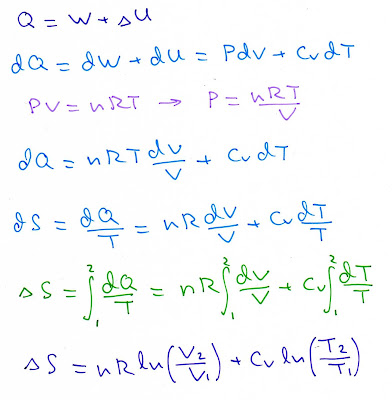 Q = W + ΔU
dQ = dW + dU = PdV + CvdT
PV = nRT → P = nRT/V
dQ = nRT dV/V + CvdT
dS = dQ/T = nR dV/V + Cv dT/T
ΔS = ∫₁² dQ/T = nR ∫₁² dV/V + Cv ∫₁² dT/T
ΔS = nR ln(V₂/V₁) + Cv ln(T₂/T₁)